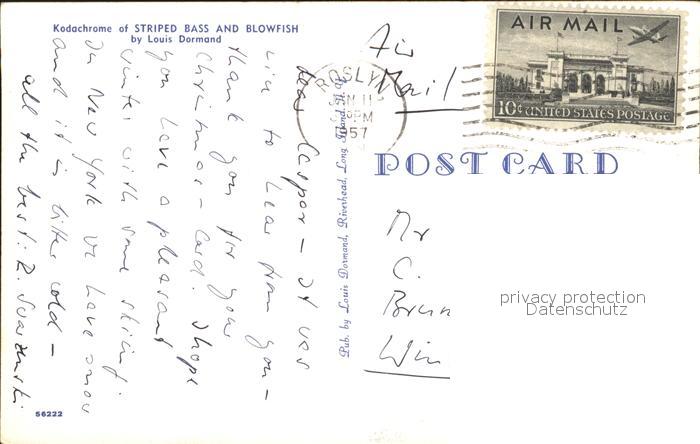 Kodachrome of STRIPED BASS AND BLOWFISH
by Louis Dormand
Dear Caspar – It was
nice to hear from you –
thank you for your
Christmas-Card. I hope
you have a pleasant
winter with some skiing.
In New York we have snow
and it is bitter cold –
all the best: R.
56222
Pub. by Louis Dormand, Riverhead, Long Island, N. Y.
Air
Mail
ROSLYN
JAN 11
PM
1957
AIR MAIL
10¢ UNITED STATES POSTAGE
POST CARD
Mr
C.
Brun
privacy protection
Datenschutz